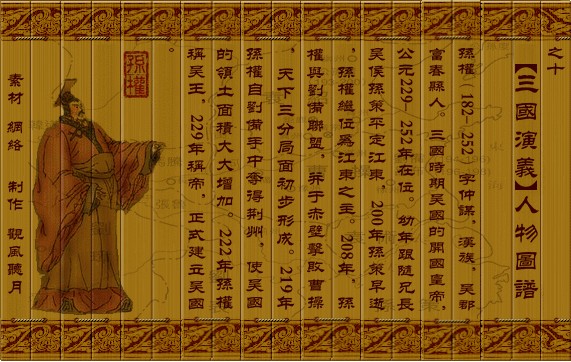 之十
【三國演義】人物圖譜
孫權（182–252） 字仲謀，漢族，吳郡
富春縣人。三國時期吳國的開國皇帝，
公元229–252年在位。幼年跟隨兄長
吳侯孫策平定江東，200年孫策早逝
，孫權繼位為江東之主。208年，孫
權與劉備聯盟，并于赤壁擊敗曹操
，天下三分局面初步形成。219年
孫權自劉備手中奪得荊州，使吳國
的領土面積大大增加。222年孫權
稱吳王，229年稱帝，正式建立吳國
。
孫權
素材 網絡 制作 觀風聽月